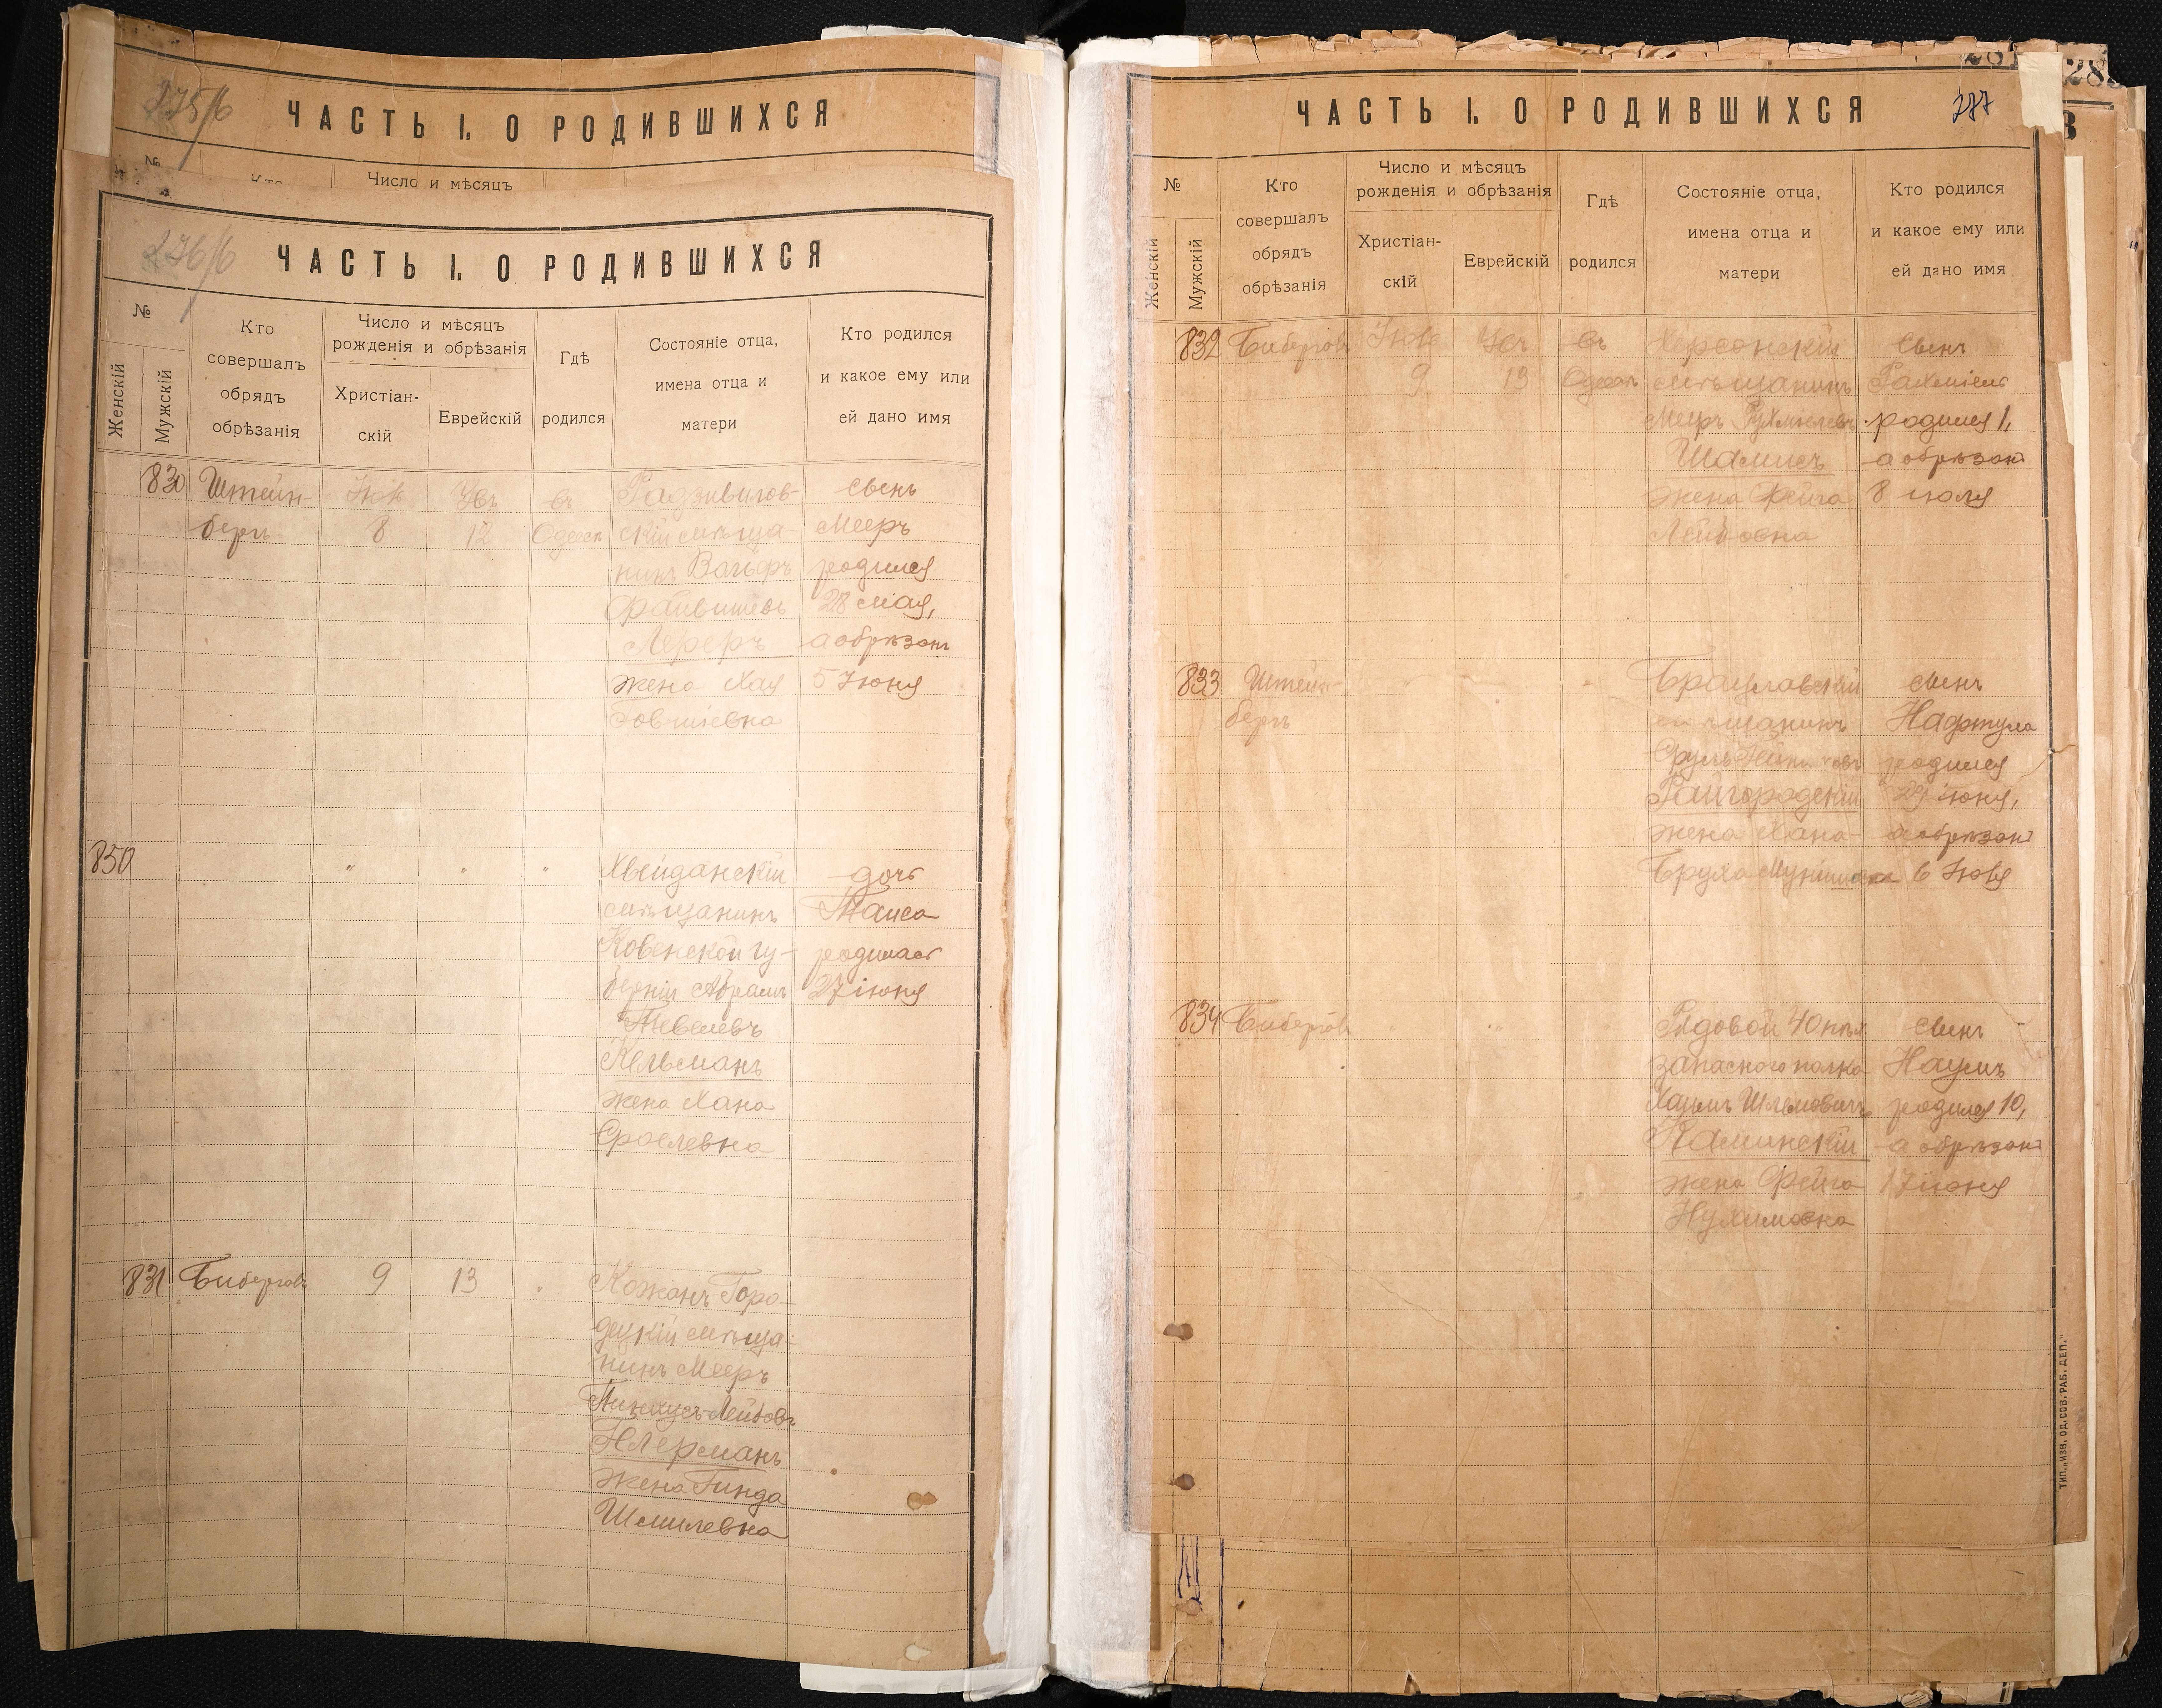 275/6
ЧАСТЬ I. О РОДИВШИХСЯ
№
Число и мѣсяцъ
276/6
ЧАСТЬ I. О РОДИВШИХСЯ
№
Женскій
Мужскій
Кто
совершалъ
обрядъ
обрѣзанія
Число и мѣсяцъ
рожденія и обрѣзанія
Христіан-
скій
Еврейскій
Гдѣ
родился
Состояніе отца,
имена отца и
матери
Кто родился
и какое ему или
ей дано имя
830
Штейн-
бергъ
8
12
въ
Одессѣ
Радзивилов-
скій мѣща-
нинъ
Лереръ
жена Хая
сынъ
Мееръ
родился
28 мая,
а обрѣзанъ
5 Іюня
850
" " "
Хвейданскій
мѣщанинъ
Ковенской гу-
берніи Абрамъ
Тевелевъ
Кельманъ
жена Хана
Сроелевна
дочь
Таиса
родилась
27 іюня
831
9
13
"
Кожанъ Горо-
децкій мѣща-
нинъ Мееръ
Пинхусъ-Лейбовъ
жена Гинда
Шмилевна
277
ЧАСТЬ I. О РОДИВШИХСЯ
№
Женскій
Мужскій
Кто
совершалъ
обрядъ
обрѣзанія
Число и мѣсяцъ
рожденія и обрѣзанія
Христіан-
скій
Еврейскій
Гдѣ
родился
Состояніе отца,
имена отца и
матери
Кто родился
и какое ему или
ей дано имя
832
9
13
въ
Одессѣ
Херсонскій
мѣщанинъ
Мееръ
Шамисъ
жена Фейга
Лейбовна
сынъ
Рахміель
родился 1,
а обрѣзанъ
8 іюля
833
Штейн-
бергъ
Брацлавскій
мѣщанинъ
Сруль
Райгородскій
жена Хана-
Бруха
сынъ
Нафтула
родился
29 іюня,
а обрѣзанъ
6 Іюля
834
Рядовой 40 пѣх.
запасного полка
Хаимъ Шлемовичъ
Каминскій
жена Фейга
Нухимовна
сынъ
Наумъ
родился 10,
а обрѣзанъ
17 іюня
ТИП. „ИЗВ. ОД. СОВ. РАБ. ДЕП."